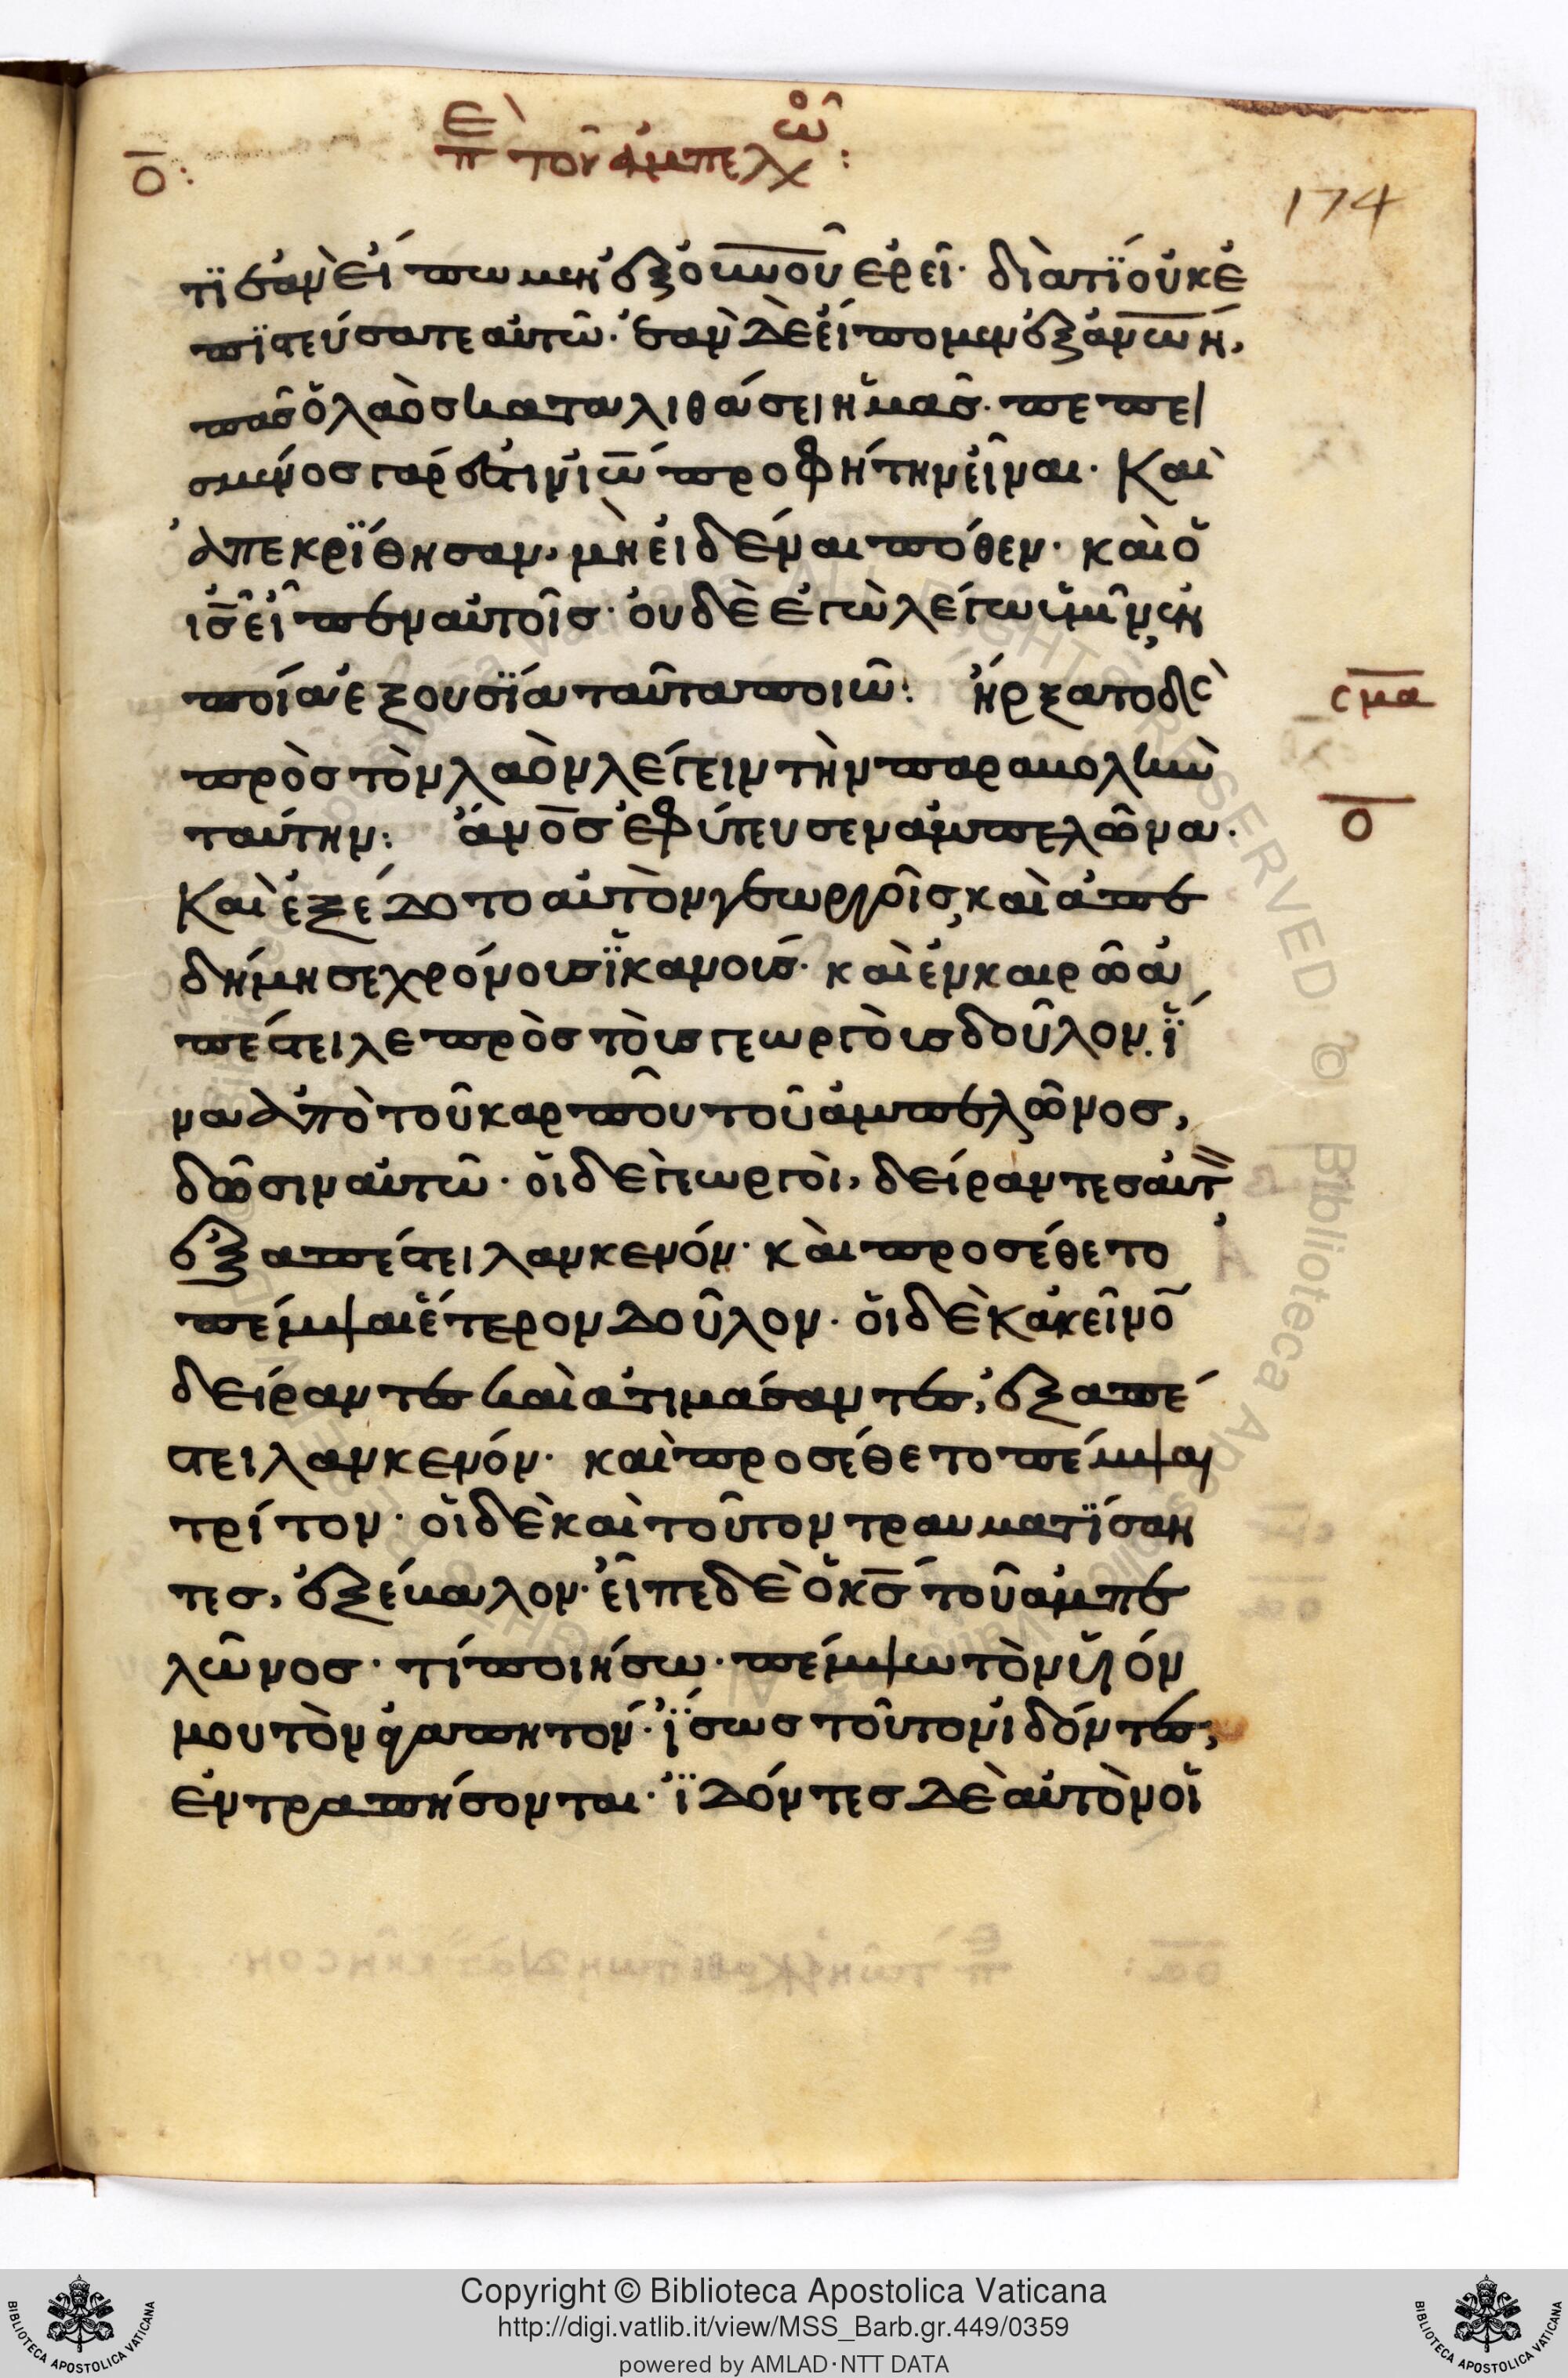 ο̅: ἐπὶ τοῦ ἀμπελῶ:
174
τϊ ἐὰν εἴπωμεν ἐξ ὀυ̅ν̅ο̅υ̅ ἐρεῖ· διὰ τϊ οὐκ ἐ
πϊστεύσατε αὐτῶ· ἐὰν δὲ εἴπομεν ἐξ α̅ν̅ω̅ν̅,
πᾶς ὁ λαὸς καταλιθάσει ἡμᾶς· πεπει
σμένος γάρ ἐστιν ι̅ω̅ προφήτην εἶναι· Καὶ
ἀπεκρϊθησαν, μὴ εἰδέναι πόθεν· καὶ ὁ
ι̅ς̅ εἶπεν αὐτοῖς· οὐδὲ ἐγὼ λέγω ὑμῖν, ἐν
ποία ἐξουσϊα ταῦτα ποιῶ: ἤρξατο δὲ
σ̅μ̅α̅
πρὸς τὸν λαὸν λέγειν τὴν παραβολὴν
ταύτην: ἄν̅ο̅ς̅ ἐφύτευσεν ἀμπελῶνα·
ο̅
Καὶ ἐξέδοτο αὐτὸν γεωργοῖς, καὶ ἀπε
δήμησε χρόνους ϊκανούς· καὶ ἐν καιρῶ ἀ
πέστειλε πρὸς τοὺς γεωργοὺς δοῦλον, ϊ
να ἀπὸ τοῦ καρποῦ τοῦ ἀμπελῶνος,
δῶσιν αὐτῶ· οἱ δὲ γεωργοὶ, δείραντες αὐτ
ἐξαπέστειλαν κενόν· καὶ προσέθετο
πέμψαι ἕτερον δοῦλον· οἱ δὲ κἀκεῖνο̅
δείραντες καὶ ἀτιμάσαντες, ἐξαπέ
στειλαν κενόν· καὶ προσέθετο πέμψαι
τρίτον· οἱ δὲ καὶ τοῦτον τραυματϊσαν
τες, ἐξέβαλον· εἶπε δὲ ὁ κ̅ς̅ τοῦ ἀμπε
λῶνος· τί ποιήσω· πέμψω τὸν υἱόν
μου τὸν ἀγαπητόν· ϊσως τοῦτον ἰδόντες,
ἐντραπήσονται· ϊδόντες δὲ αὐτὸν οἱ
Copyright © Biblioteca Apostolica Vaticana
http://digi.vatlib.it/view/MSS_Barb.gr.449/0359
powered by AMLAD·NTT DATA
BIBLIOTECA APOSTOLICA VATICANA
BIBLIOTECA APOSTOLICA VATICANA